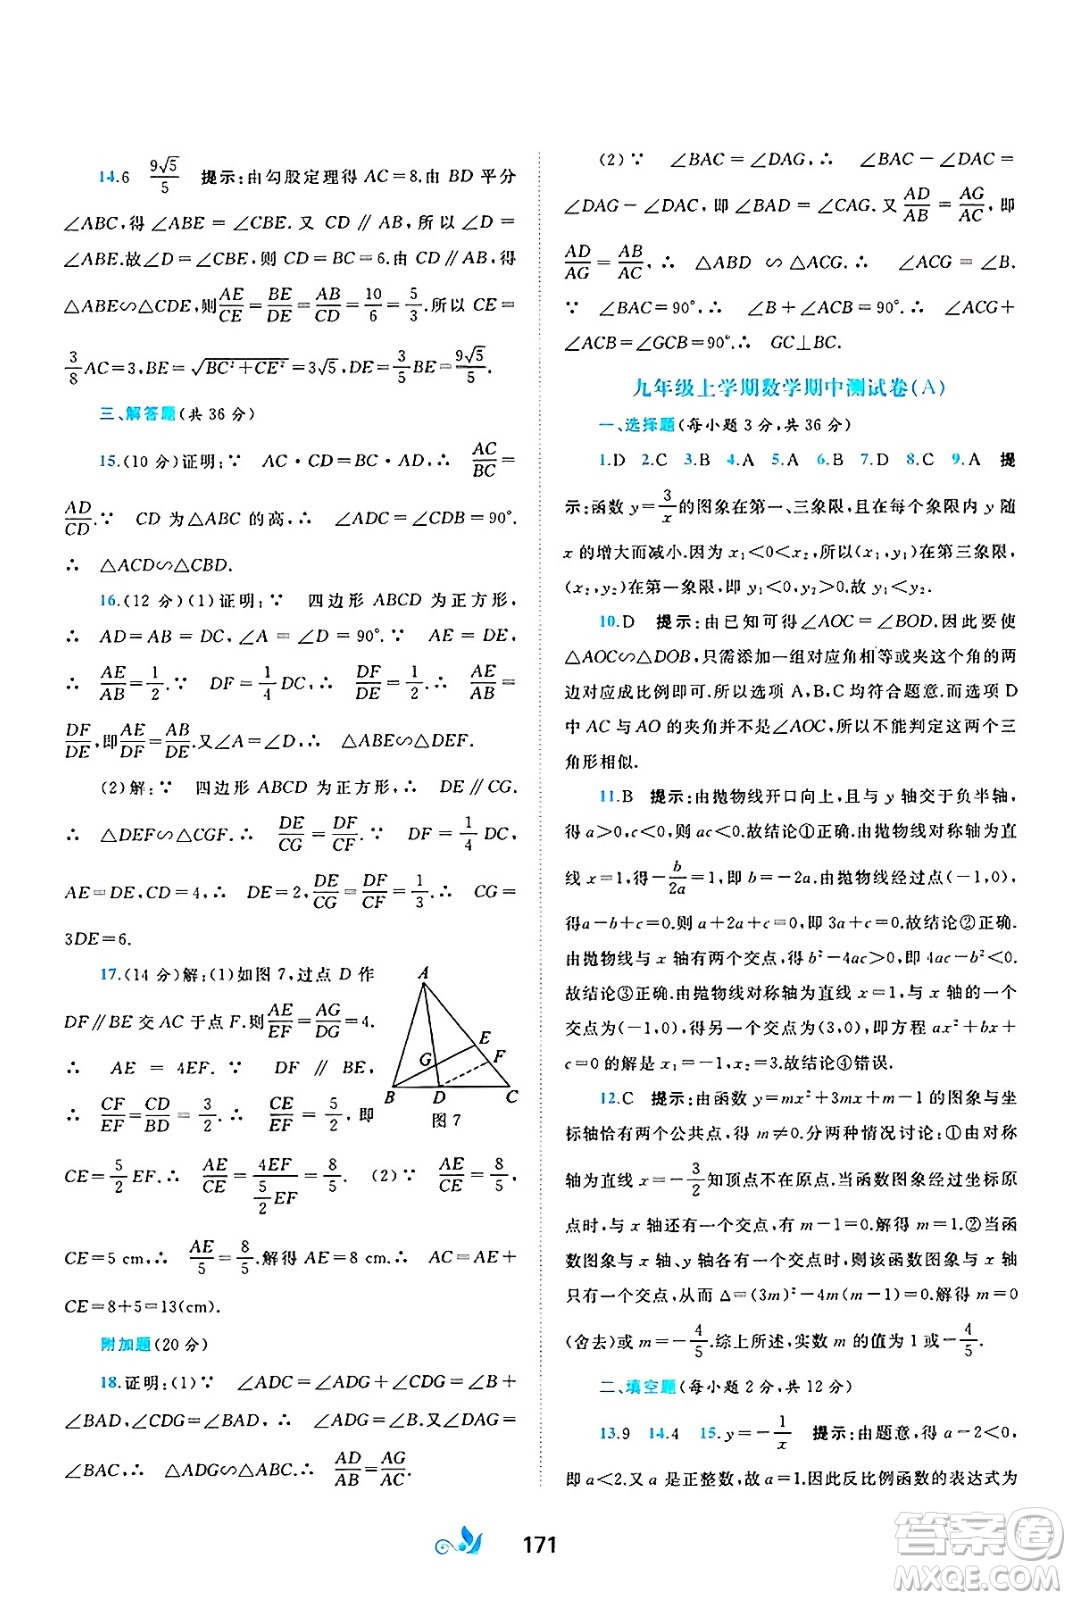 14.6　9√5/5　提示:由勾股定理得 AC=8.由 BD 平分
∠ABC,得∠ABE=∠CBE.又 CD∥AB,所以∠D=
∠ABE.故∠D=∠CBE,则 CD=BC=6.由 CD∥AB,得
△ABE∽△CDE,则AE/CE=BE/DE=AB/CD=10/6=5/3.所以 CE=
3/8AC=3,BE=√(BC²+CE²)=3√5,DE=3/5BE=9√5/5.
三、解答题(共 36 分)
15.(10 分)证明:∵　AC·CD=BC·AD,∴　AC/BC=
AD/CD.∵　CD 为△ABC 的高,∴　∠ADC=∠CDB=90°.
∴　△ACD∽△CBD.
16.(12 分)(1)证明:∵　四边形 ABCD 为正方形,
∴　AD=AB=DC,∠A=∠D=90°.∵　AE=DE,
∴　AE/AB=1/2.∵　DF=1/4DC,∴　DF/DE=1/2.∴　AE/AB=
DF/DE,即AE/DF=AB/DE.又∠A=∠D,∴　△ABE∽△DEF.
(2)解:∵　四边形 ABCD 为正方形,∴　DE∥CG.
∴　△DEF∽△CGF.∴　DE/CG=DF/CF.∵　DF=1/4DC,
AE=DE,CD=4,∴　DE=2,DE/CG=DF/CF=1/3.∴　CG=
3DE=6.
17.(14 分)解:(1)如图 7,过点 D 作
DF∥BE 交 AC 于点 F.则AE/EF=AG/DG=4.
∴　AE=4EF.∵　DF∥BE,
∴　CF/EF=CD/BD=3/2.∴　CE/EF=5/2,即
CE=5/2EF.∴　AE/CE=4EF/(5/2EF)=8/5.　(2)∵　AE/CE=8/5,
CE=5 cm,∴　AE/5=8/5.解得 AE=8 cm.∴　AC=AE+
CE=8+5=13(cm).
A
G
E
F
B
D
C
图 7
附加题(20 分)
18.证明:(1)∵　∠ADC=∠ADG+∠CDG=∠B+
∠BAD,∠CDG=∠BAD,∴　∠ADG=∠B.又∠DAG=
∠BAC,∴　△ADG∽△ABC.∴　AD/AB=AG/AC.
(2)∵　∠BAC=∠DAG,∴　∠BAC-∠DAC=
∠DAG-∠DAC,即∠BAD=∠CAG.又AD/AB=AG/AC,即
AD/AG=AB/AC,∴　△ABD∽△ACG.∴　∠ACG=∠B.
∵　∠BAC=90°,∴　∠B+∠ACB=90°.∴　∠ACG+
∠ACB=∠GCB=90°.∴　GC⊥BC.
九年级上学期数学期中测试卷(A)
一、选择题(每小题 3 分,共 36 分)
1.D　2.C　3.B　4.A　5.A　6.B　7.D　8.C　9.A　提
示:函数 y=3/x的图象在第一、三象限,且在每个象限内 y 随
x 的增大而减小.因为 x₁<0<x₂,所以(x₁,y₁)在第三象限,
(x₂,y₂)在第一象限,即 y₁<0<y₂.所以 y₁<y₂.
10.D　提示:由已知可得∠AOC=∠BOD.因此要使
△AOC∽△DOB,只需添加一组对应角相等或夹这个角的两
边对应成比例即可.所以选项 A,B,C 均符合题意.而选项 D
中 AC 与 AO 的夹角并不是∠AOC,所以不能判定这两个三
角形相似.
11.B　提示:由抛物线开口向上,且与 y 轴交于负半轴,
得 a>0,c<0,则 ac<0.故结论①正确.由抛物线对称轴为直
线 x=1,得-b/2a=1,即 b=-2a.由抛物线经过点(-1,0),
得a-b+c=0.则 a+2a+c=0,即 3a+c=0.故结论②正确.
由抛物线与 x 轴有两个交点,得 b²-4ac>0,即 4ac-b²<0.
故结论③正确.由抛物线对称轴为直线 x=1,与 x 轴的一个
交点为(-1,0),得另一个交点为(3,0),即方程 ax²+bx+
c=0 的解是 x₁=-1,x₂=3.故结论④错误.
12.C　提示:由函数 y=mx²+3mx+m-1 的图象与坐
标轴恰有两个公共点,得 m≠0.分两种情况讨论:①由对称
轴为直线 x=-3/2知顶点不在原点.若函数图象经过坐标原
点时,与 x 轴还有一个交点,有 m-1=0.解得 m=1.②当函
数图象与 x 轴、y 轴各有一个交点时,则该函数图象与 x 轴
只有一个交点,从而 Δ=(3m)²-4m(m-1)=0.解得 m=0
(舍去)或 m=-4/5.综上所述,实数 m 的值为 1 或-4/5.
二、填空题(每小题 2 分,共 12 分)
13.9　14.4　15.y=-1/x　提示:由题意,得 a-2<0,
即 a<2.又 a 是正整数,故 a=1.因此反比例函数的表达式为
171
答案圈
MXQE.COM